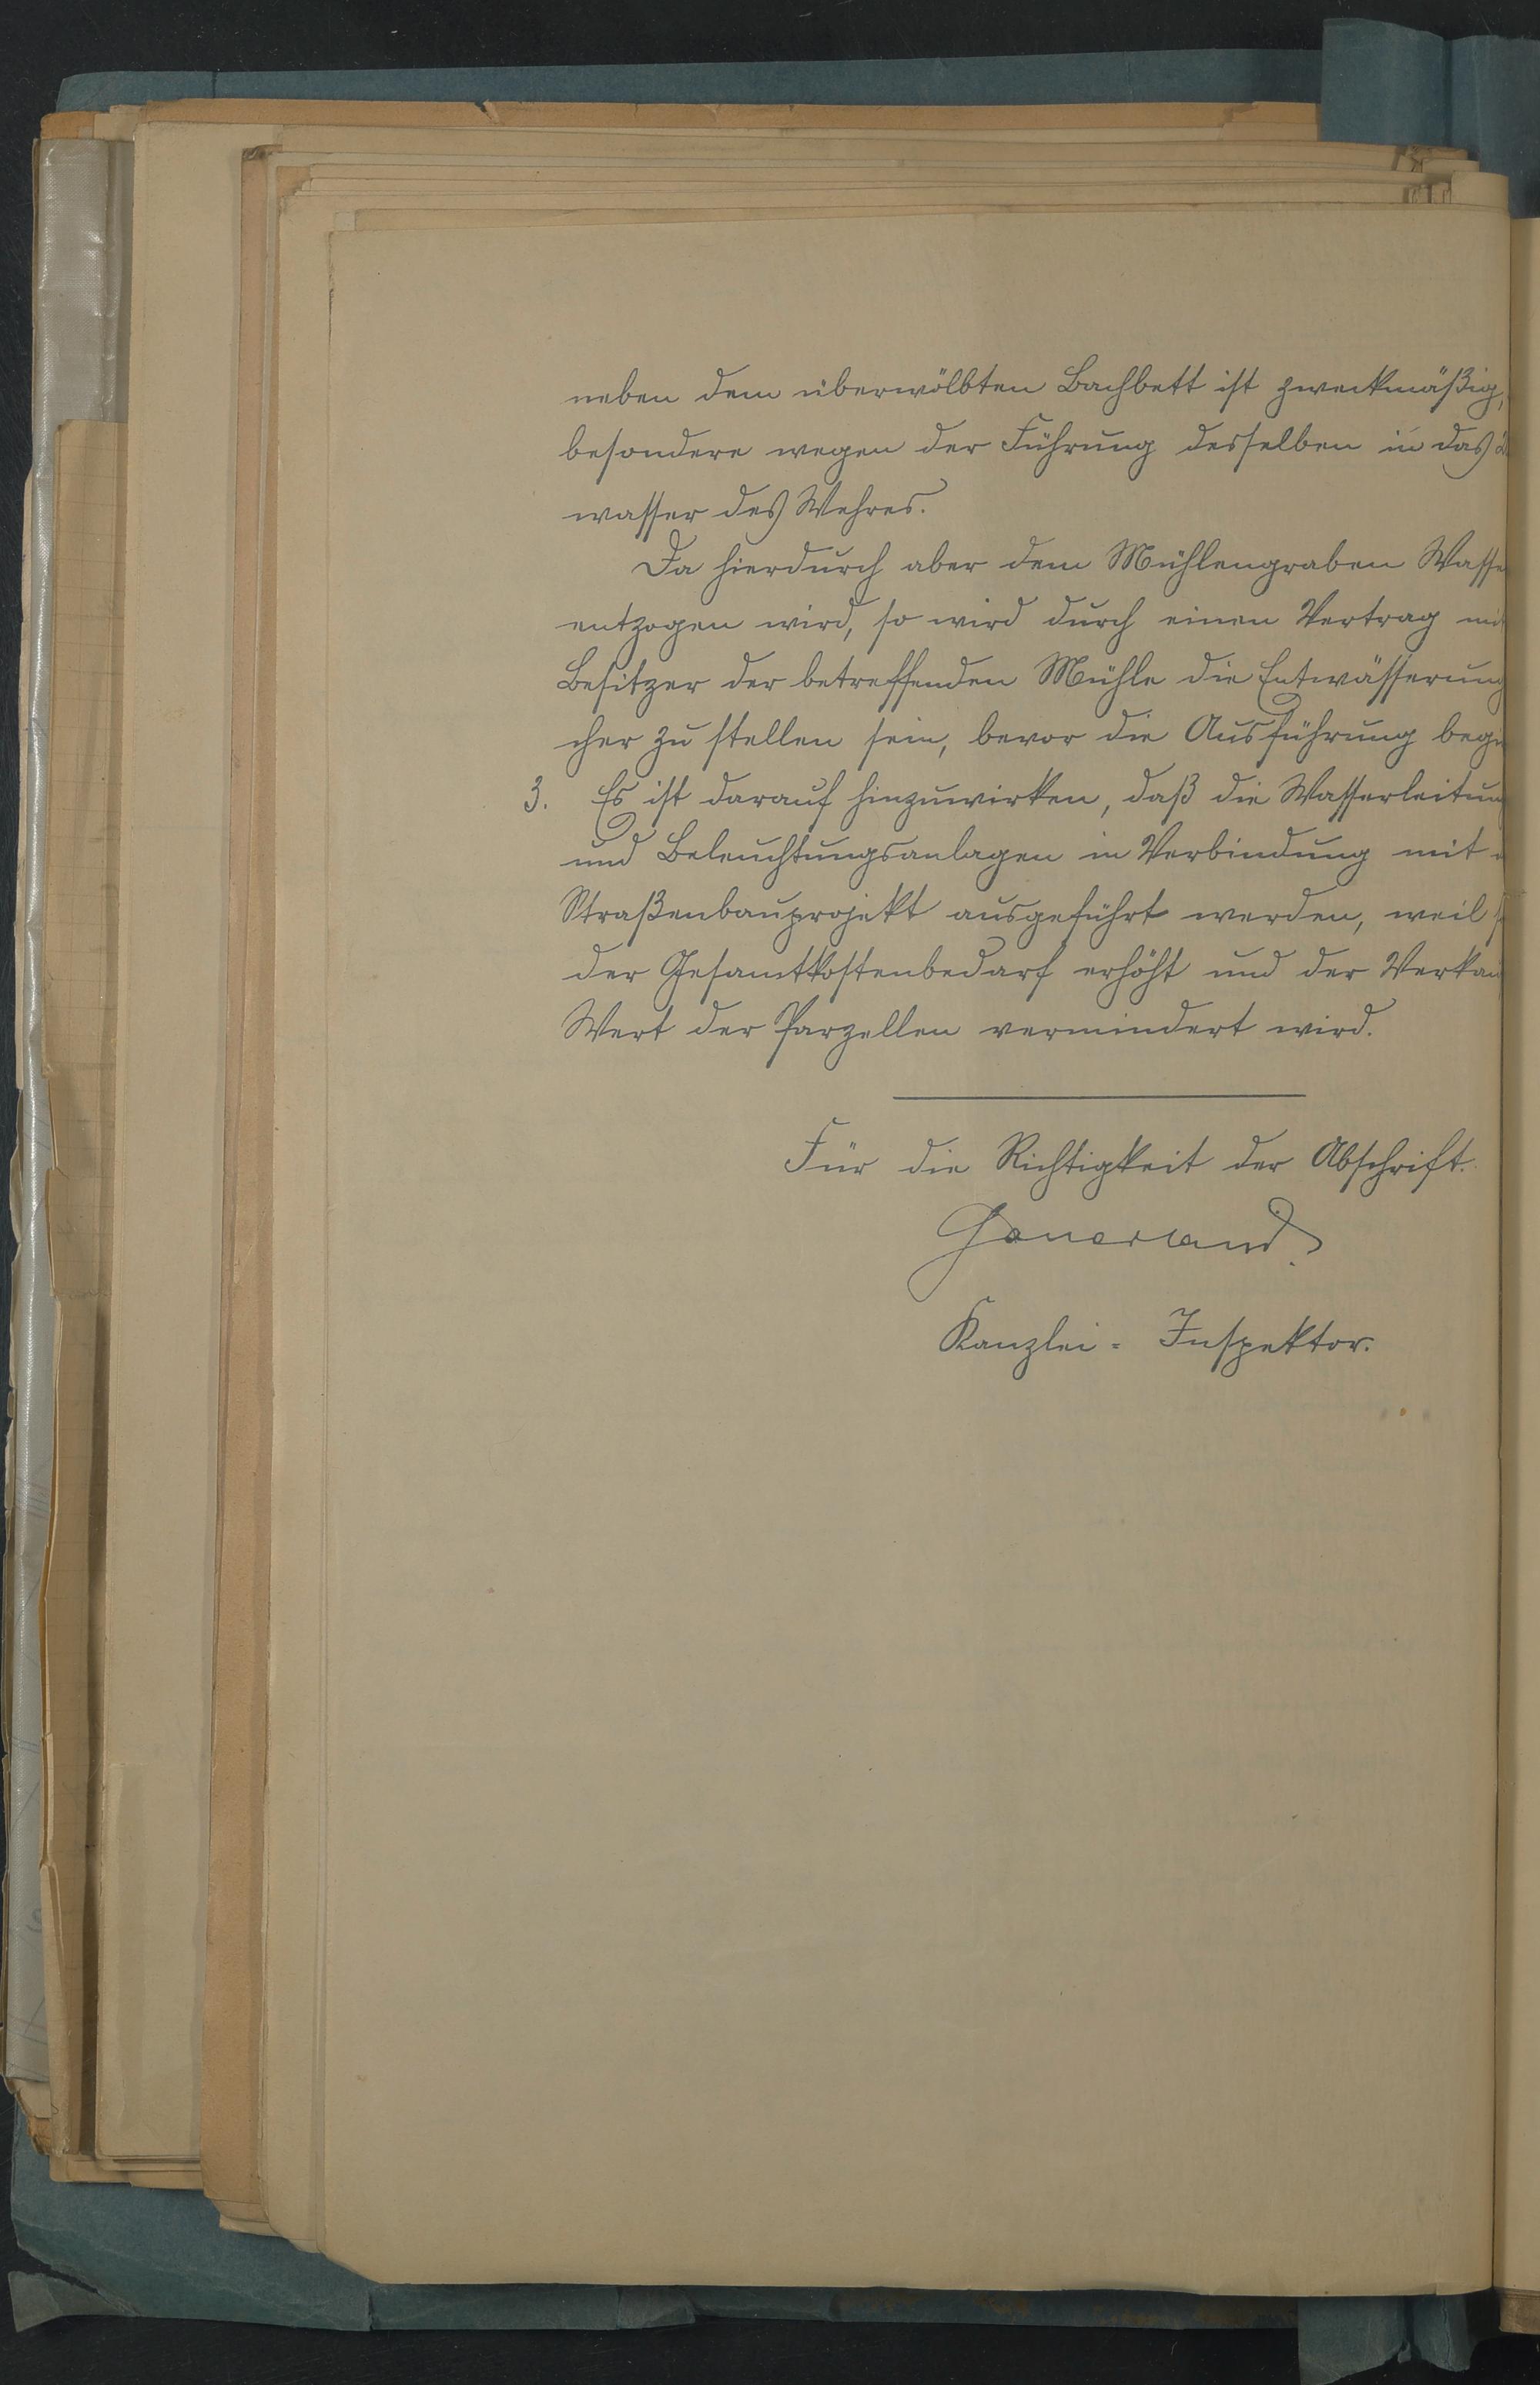 neben dem überwölbten Bachbett ist zweckmäßig,
besondere wegen der Führung desselben in das
wasser des Wehres.
Da hierdurch aber dem Mühlengraben Wasse
entzogen wird, so wird durch einen Vertrag mit
Besitzer der betreffenden Mühle die Entwässerung
cher zu stellen sein, bevor die Ausführung begi
3. Es ist darauf hinzuwirken, daß die Wasserleitung
und Beleuchtungsanlagen in Verbindung mit
Straßenbauprojekt ausgeführt werden, weil
der Gesamtkostenbedarf erhöht und der Verkau
Wert der Parzellen vermindert wird.
Für die Richtigkeit der Abschrift.
Kanzlei = Inspektor.